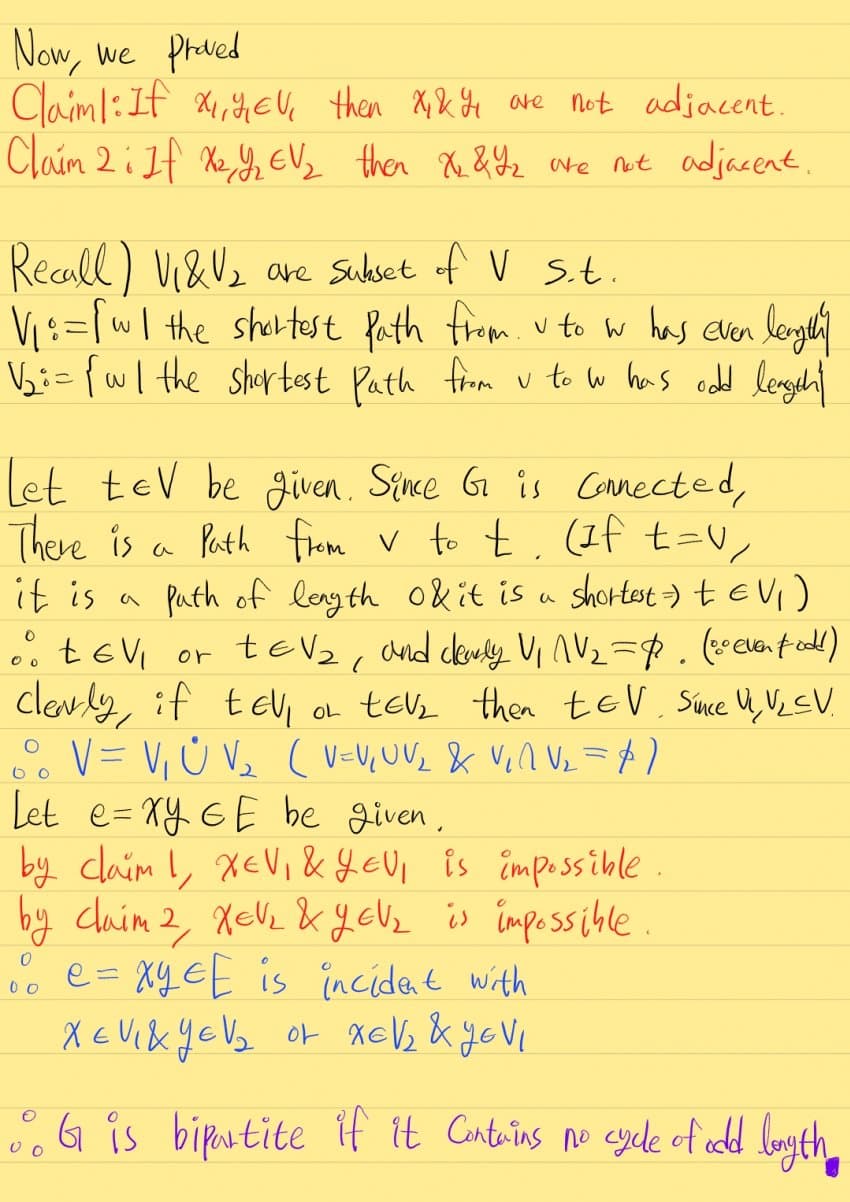 Now, we proved
Claim 1: If x₁, y₁ ∈ V₁ then x₁ & y₁ are not adjacent.
Claim 2: If x₂, y₂ ∈ V₂ then x₂ & y₂ are not adjacent.
Recall) V₁ & V₂ are subset of V s.t.
V₁ := {w | the shortest path from v to w has even length}
V₂ := {w | the shortest path from v to w has odd length}
Let t ∈ V be given. Since G is connected,
There is a path from v to t. (If t = v,
it is a path of length 0 & it is a shortest ⇒ t ∈ V₁)
∴ t ∈ V₁ or t ∈ V₂, and clearly V₁ ∩ V₂ = ∅. (∵ even ≠ odd)
clearly, if t ∈ V₁ or t ∈ V₂ then t ∈ V. Since V₁, V₂ ⊆ V.
∴ V = V₁ ∪̇ V₂ ( V = V₁ ∪ V₂ & V₁ ∩ V₂ = ∅ )
Let e = xy ∈ E be given.
by claim 1, x ∈ V₁ & y ∈ V₁ is impossible.
by claim 2, x ∈ V₂ & y ∈ V₂ is impossible.
∴ e = xy ∈ E is incident with
x ∈ V₁ & y ∈ V₂ or x ∈ V₂ & y ∈ V₁
∴ G is bipartite if it contains no cycle of odd length.